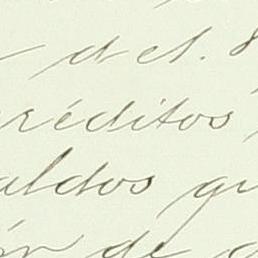 del.
créditos
saldos qu
ón de